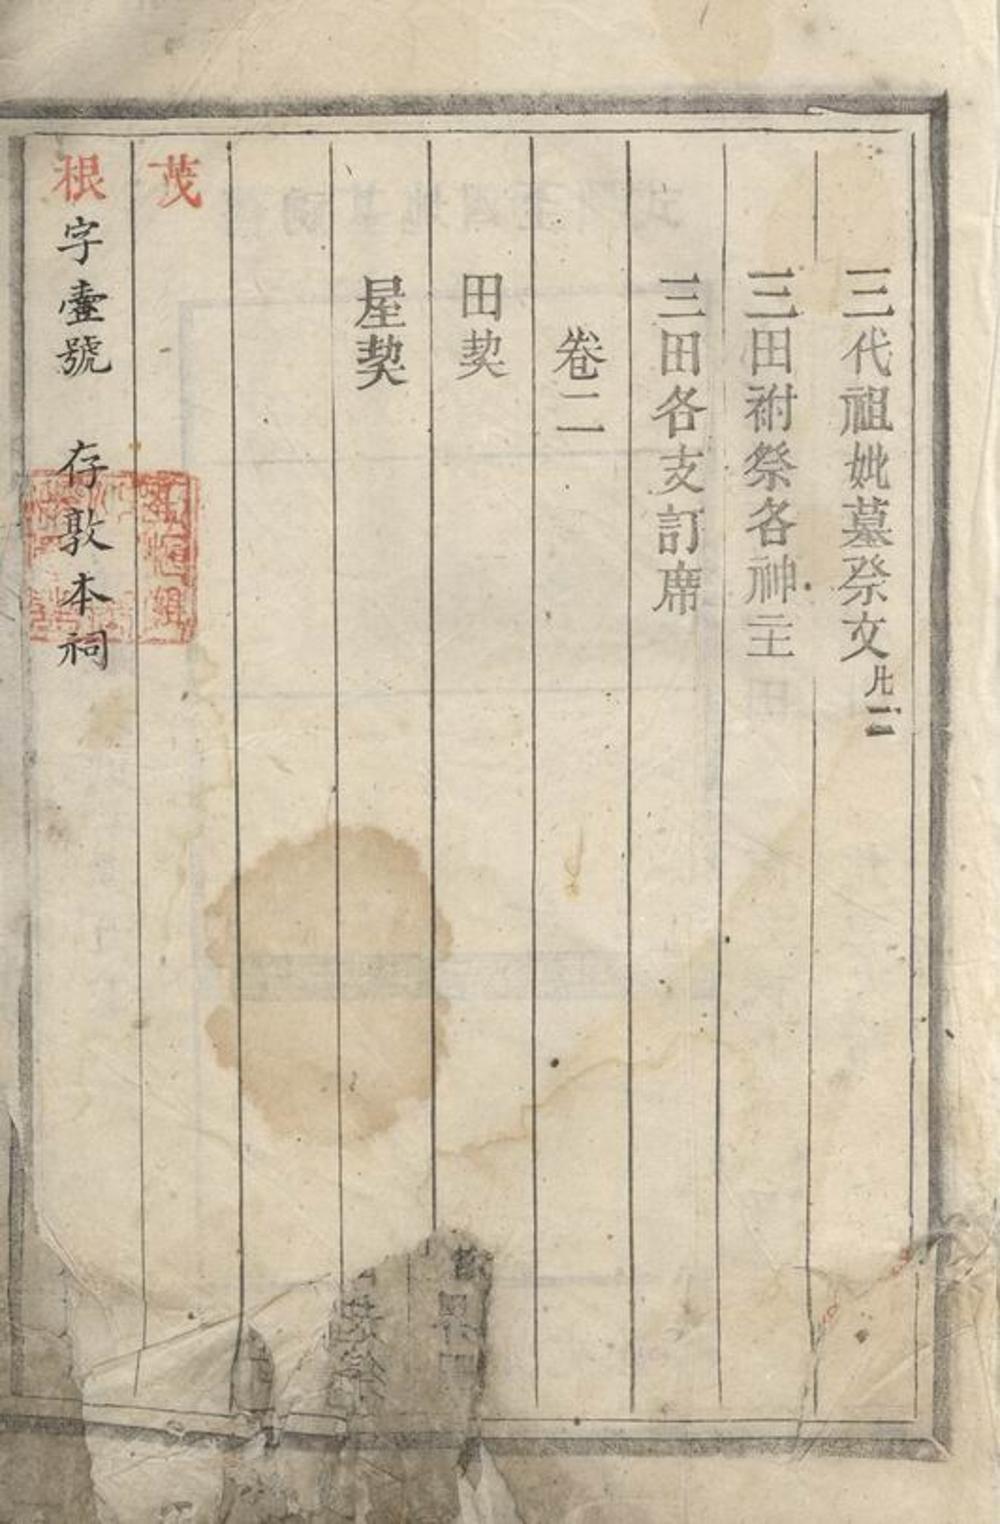 三代祖妣墓祭文凡二
三田祔祭各神主
三田各支訂席
卷二
田契
屋契
茂
根字壹號 存敦本祠